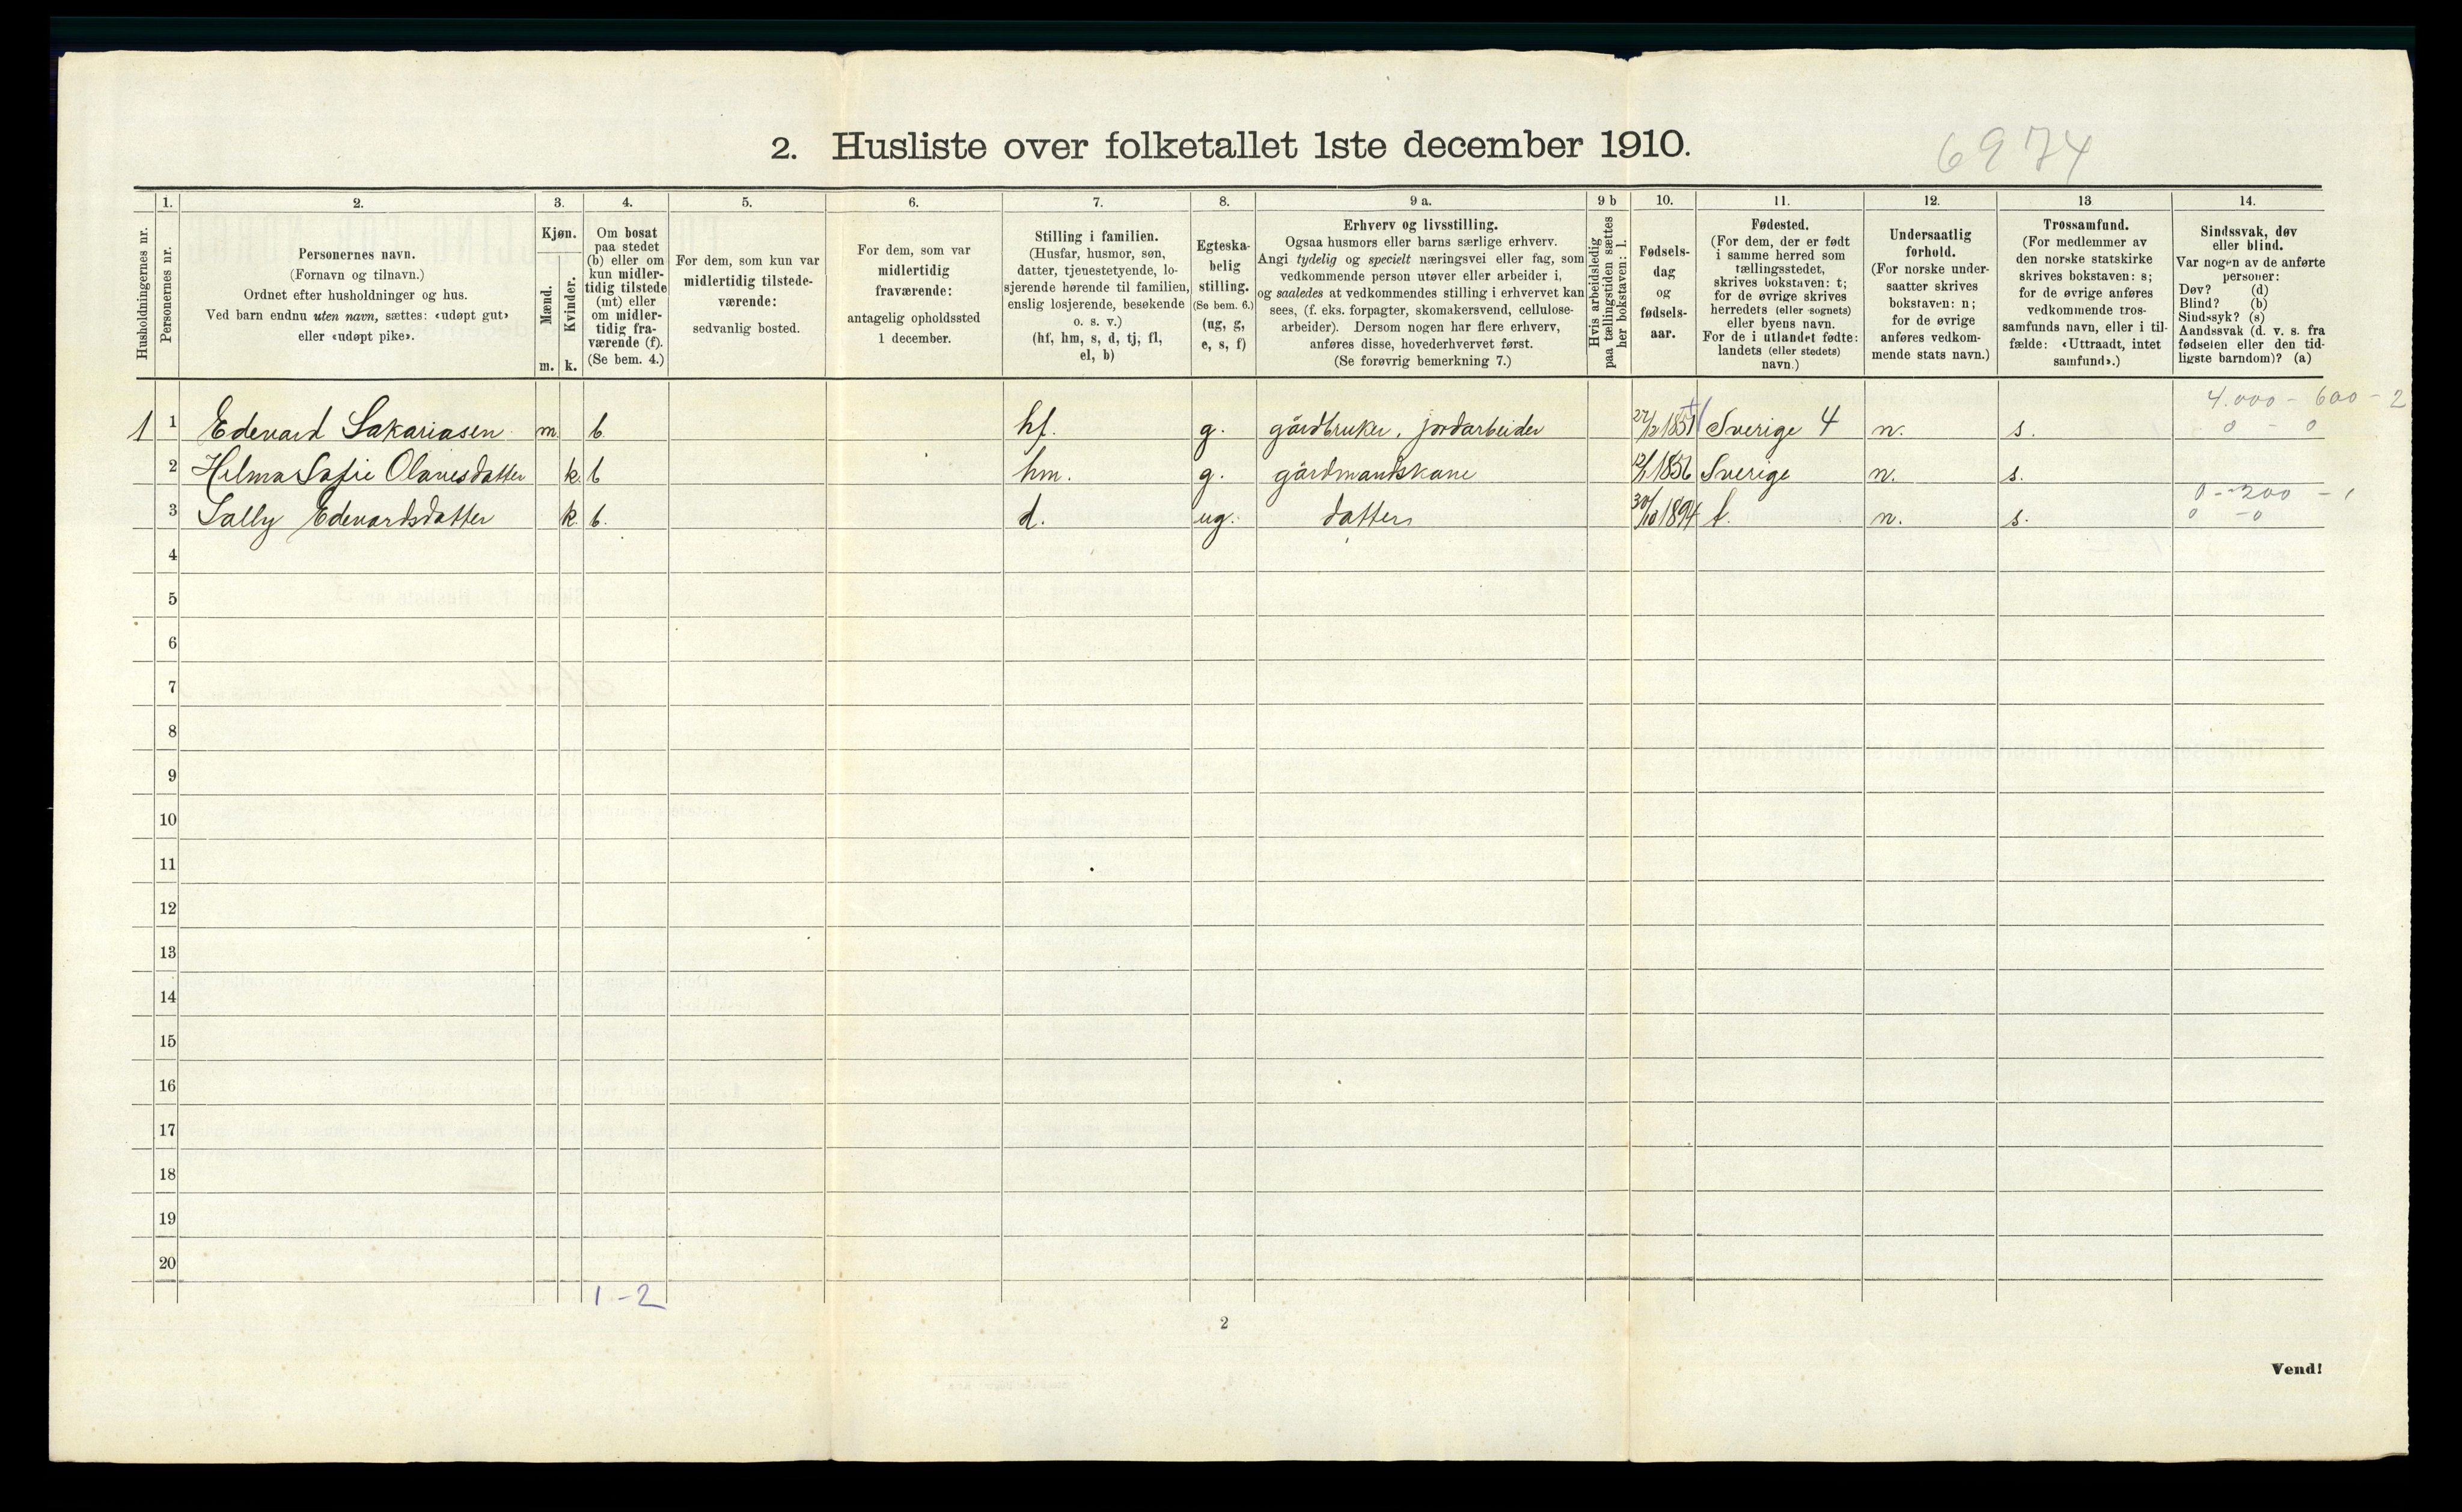 2. Husliste over folketallet 1ste december 1910.
6974
Husholdningernes nr.
1.
Personernes nr.
2.
Personernes navn.
(Fornavn og tilnavn.)
Ordnet efter husholdninger og hus.
Ved barn endnu uten navn, sættes: «udøpt gut»
eller «udøpt pike».
3.
Kjøn.
Mænd.
Kvinder.
m. k.
4.
Om bosat
paa stedet
(b) eller om
kun midler-
tidig tilstede
(mt) eller
om midler-
tidig fra-
værende (f).
(Se bem. 4.)
5.
For dem, som kun var
midlertidig tilstede-
værende:
sedvanlig bosted.
6.
For dem, som var
midlertidig
fraværende:
antagelig opholdssted
1 december.
7.
Stilling i familien.
(Husfar, husmor, søn,
datter, tjenestetyende, lo-
sjerende hørende til familien,
enslig losjerende, besøkende
o. s. v.)
(hf, hm, s, d, tj, fl,
el, b)
8.
Egteska-
belig
stilling.
(Se bem. 6.)
(ug, g,
e, s, f)
9 a.
Erhverv og livsstilling.
Ogsaa husmors eller barns særlige erhverv.
Angi tydelig og specielt næringsvei eller fag, som
vedkommende person utøver eller arbeider i,
og saaledes at vedkommendes stilling i erhvervet kan
sees, (f. eks. forpagter, skomakersvend, cellulose-
arbeider). Dersom nogen har flere erhverv,
anføres disse, hovederhvervet først.
(Se forøvrig bemerkning 7.)
9 b
Hvis arbeidsledig
paa tællingstiden sættes
her bokstaven: l.
10.
Fødsels-
dag
og
fødsels-
aar.
11.
Fødested.
(For dem, der er født
i samme herred som
tællingsstedet,
skrives bokstaven: t;
for de øvrige skrives
herredets (eller sognets)
eller byens navn.
For de i utlandet fødte:
landets (eller stedets)
navn.)
12.
Undersaatlig
forhold.
(For norske under-
saatter skrives
bokstaven: n;
for de øvrige
anføres vedkom-
mende stats navn.)
13
Trossamfund.
(For medlemmer av
den norske statskirke
skrives bokstaven: s;
for de øvrige anføres
vedkommende tros-
samfunds navn, eller i til-
fælde: «Uttraadt, intet
samfund».)
14.
Sindssvak, døv
eller blind.
Var nogen av de anførte
personer:
Døv? (d)
Blind? (b)
Sindssyk? (s)
Aandssvak (d. v. s. fra
fødselen eller den tid-
ligste barndom)? (a)
4.000 - 600 - 2
1 1 Edevard Sakariasen m. b. hf. g. gårdbruker, jordarbeider 1851 Sverige 4 n. s. 0 - 0
2 Hilma Sofie Olavesdatter k. b hm. g. gårdmandskone 1856 Sverige n. s.
0 - 200 - 1
3 Sally Edevardsdatter k. b. d. ug. datter 30/10 1894 t. n. s. 0 - 0
4
5
6
7
8
9
10
11
12
13
14
15
16
17
18
19
20
1 - 2
2
Vend!